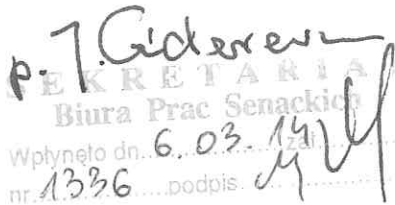 SEKRETARIA
Biura Prac Senackich
Wpłynęło dn. 6. 03. 14 zał.
nr. 1336 podpis.